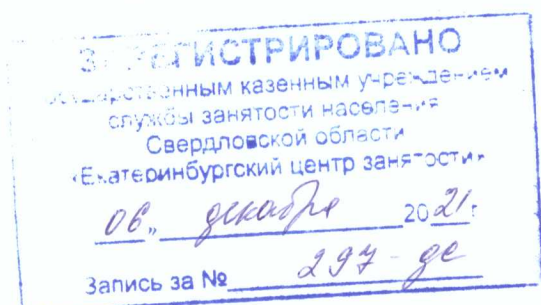 ЗАРЕГИСТРИРОВАНО
государственным казенным учреждением
службы занятости населения
Свердловской области
«Екатеринбургский центр занятости»
06„ декабря 2021г
Запись за № 297-дс